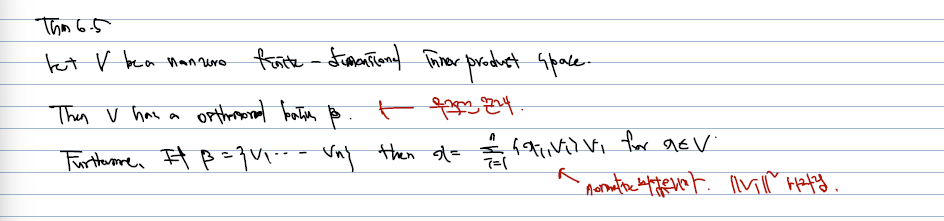 Thm 6.5
Let V be a nonzero finite - dimensional inner product space.
Then V has a orthonormal basis β. ←
Furthermore, If β = {v₁ ... vₙ} then x = Σⁿᵢ₌₁ ⟨x, vᵢ⟩ vᵢ for x ∈ V.
||vᵢ||²